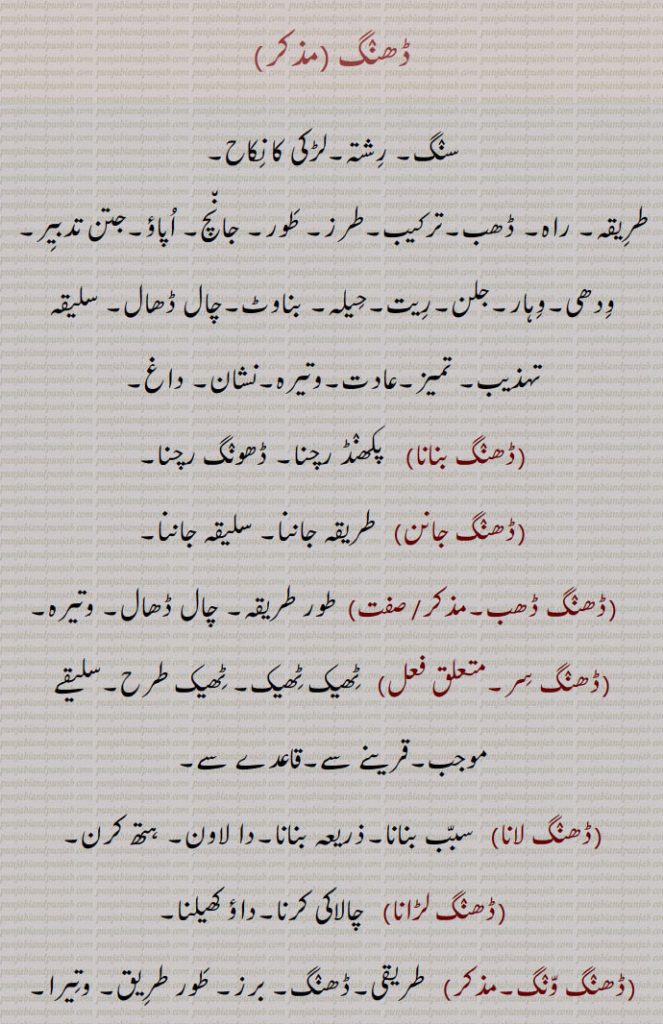 ڈھنگ (مذکر)
سنگ۔ رِشتہ۔ لڑکی کا نِکاح۔
طرِیقہ۔ راہ۔ ڈھب۔ ترکیب۔ طرز۔ طَور۔ جانّچ۔ اُپاؤ۔ جتن تدبِیر۔
وِدھی۔ وِہار۔ جلن۔ رِیت۔ حِیلہ۔ بناوٹ۔ چال ڈھال۔ سلیقہ
تہذیب۔ تمیز۔ عادت۔ وتیرہ۔ نشان۔ داغ۔
(ڈھنگ بنانا) پکھنڈ رچنا۔ ڈھونگ رچنا۔
(ڈھنگ جانن) طریقہ جاننا۔ سلیقہ جاننا۔
(ڈھنگ ڈھب۔ مذکر/ صفت) طور طریقہ۔ چال ڈھال۔ وتیرہ۔
(ڈھنگ سِر۔ متعلق فعل) ٹِھیک ٹِھیک۔ ٹِھیک طرح۔ سلیقے
موجب۔ قرینے سے۔ قاعدے سے۔
(ڈھنگ لانا) سببّ بنانا۔ ذریعہ بنانا۔ دا لاون۔ ہتھ کرن۔
(ڈھنگ لڑانا) چالاکی کرنا۔ داؤ کھیلنا۔
(ڈھنگ وّنگ۔ مذکر) طریقی۔ ڈھنگ۔ برز۔ طَور طرِیق۔ وتِیرا۔